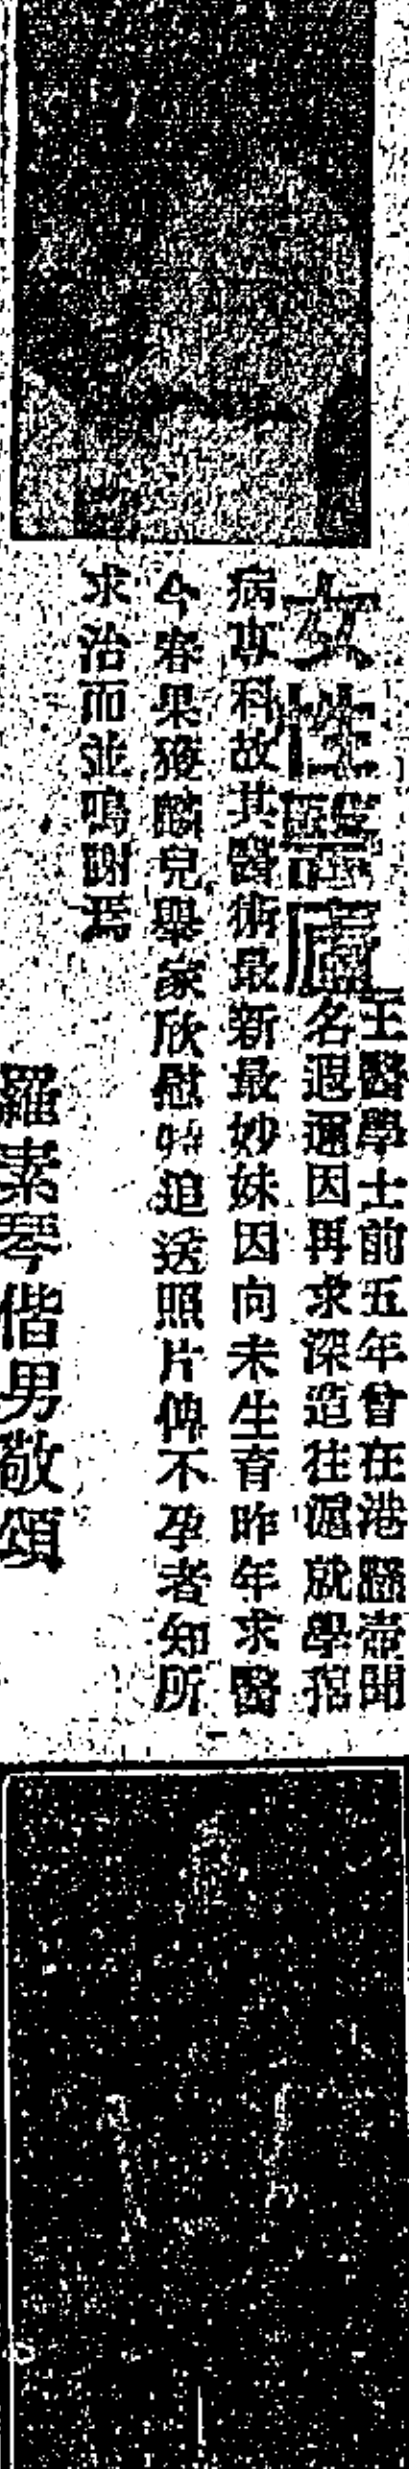 女性醫廬
王醫學士前五年曾在港懸壺聞
名遐邇因再求深造往滬就學
病專科故其醫術最新最妙妹因向未生育昨年求醫
今春果獲麟兒舉家欣慰特追送照片俾不孕者知所
求治而並鳴謝焉
羅素琴偕男敬頌